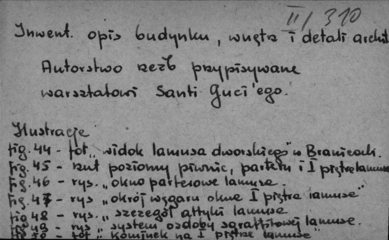 II/310
Inwent. opis budynku, wnętrz i detali archit.
Autorstwo rzeźb przypisywane
warsztatowi Santi Guci'ego.
Ilustracje
Fig. 44 - fot. „widok lamusa dworskiego" w Branicach.
Fig. 45 - rzut poziomy piwnic, parteru i I piętra lamusa
Fig. 46 - rys. „okno parterowe lamusa.
Fig. 47 - rys. „okrój węgaru okna I piętra lamusa"
Fig 48 - rys. „szczegół attyki lamusa
- rys. „system ozdoby sgraffitowej lamusa.
- fot „kominek na I piętrze lamusa"